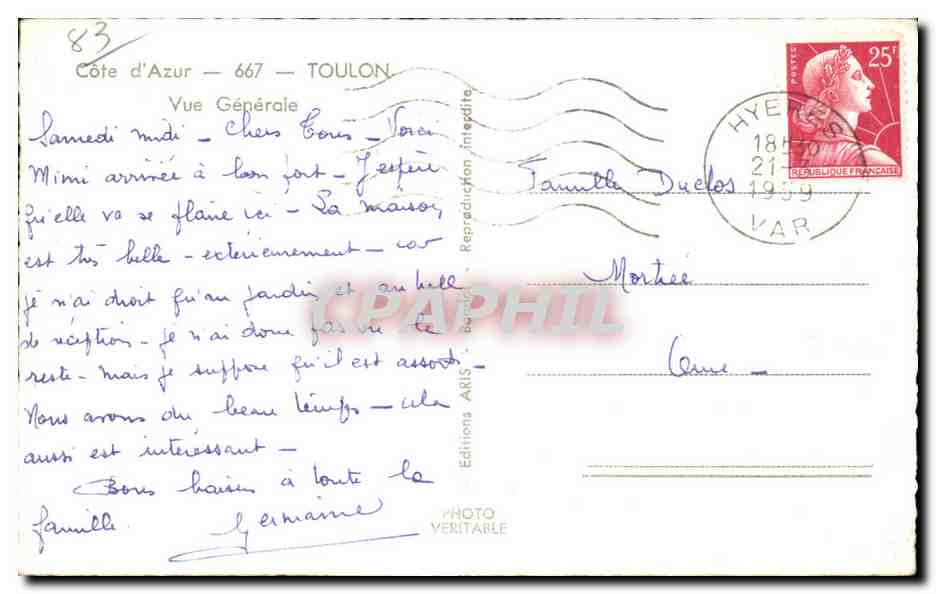 83
Côte d'Azur — 667 — TOULON
Vue Générale
Samedi midi — Chers Tous — Voici
Mimi arrivée à bon port — J'espère
qu'elle va se plaire ici — La maison
est très belle — extérieurement — car
je n'ai droit qu'au jardin et au hall
de réception — je n'ai donc pas vu le
reste — mais je suppose qu'il est assorti —
Nous avons du beau temps — cela
aussi est intéressant —
Bons baisers à toute la
famille.
Germaine
Editions ARIS - Bandol - Reproduction interdite
PHOTO
VERITABLE
POSTES
25F
REPUBLIQUE FRANÇAISE
HYERES
18H
21-
1959
VAR
Famille Duclos
Mortrée
Orne —
CPAPHIL